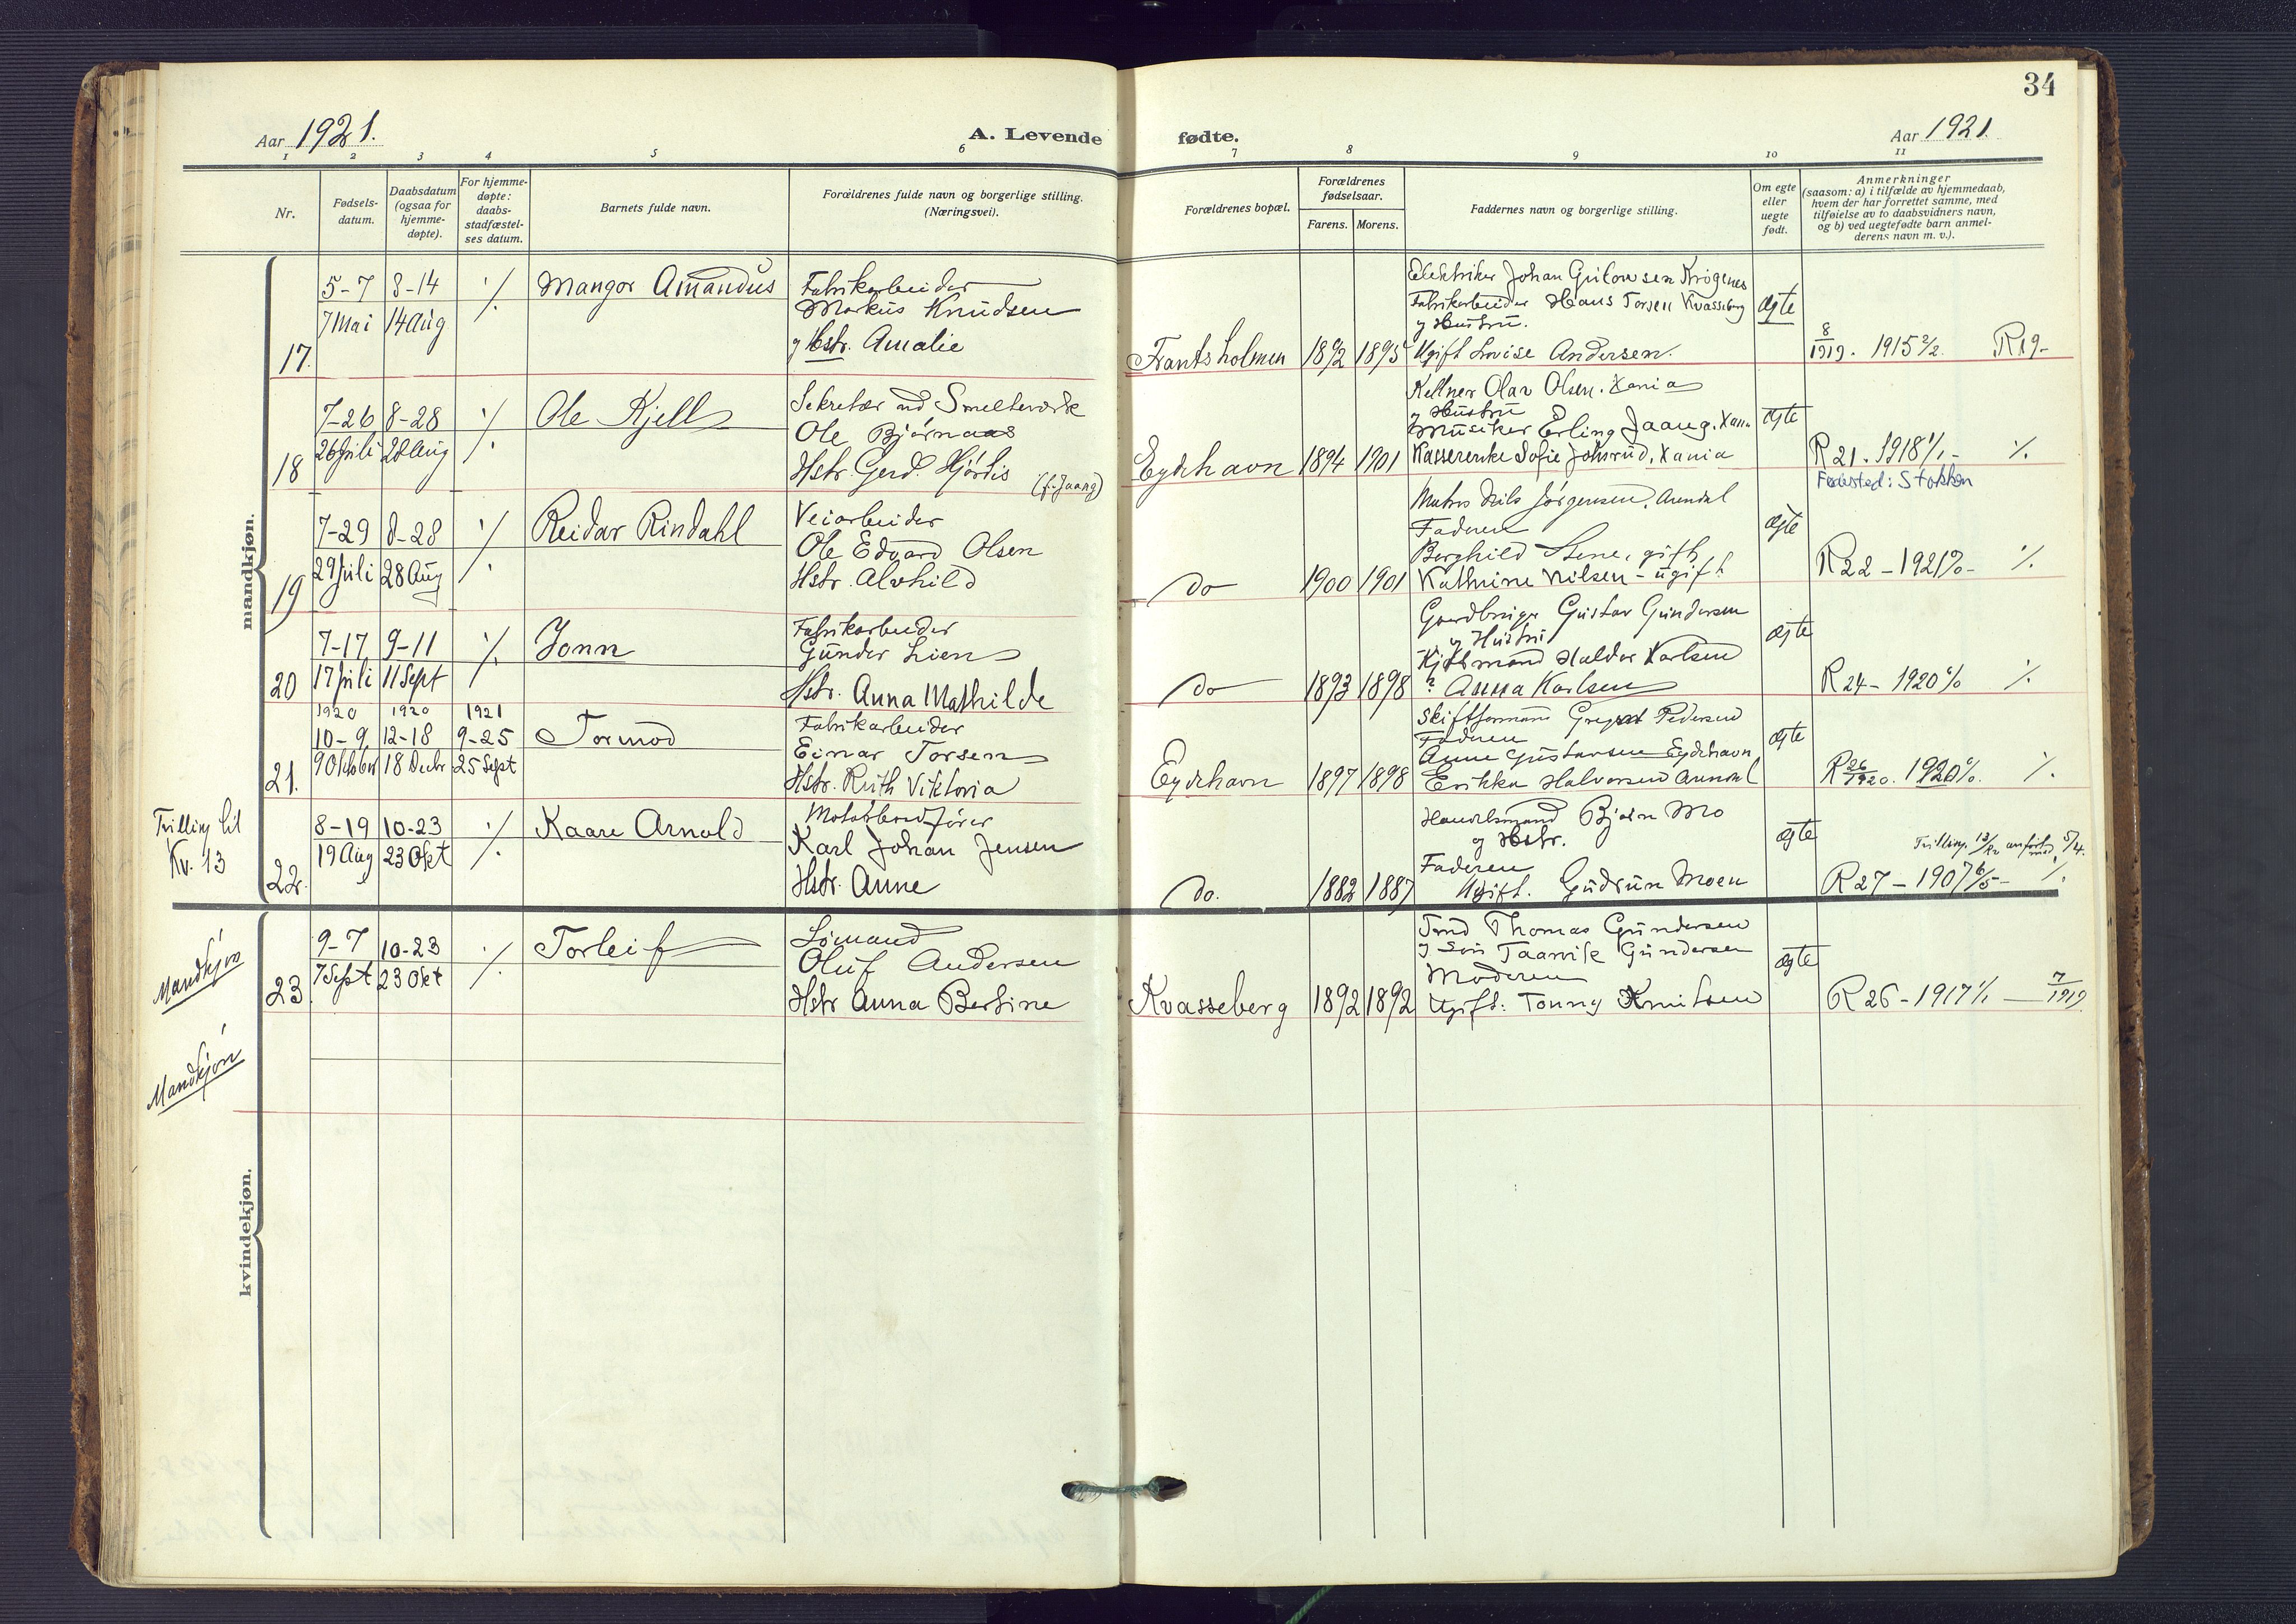 34
Aar 1921.
A. Levende
fødte.
Aar 1921.
1 2 3 4 5 6 7 8 9 10 11
Nr.
Fødsels-
datum.
Daabsdatum
(ogsaa for
hjemme-
døpte).
For hjemme-
døpte:
daabs-
stadfæstel-
ses datum.
Barnets fulde navn.
Forældrenes fulde navn og borgerlige stilling.
(Næringsvei).
Forældrenes bopæl.
Forældrenes
fødselsaar.
Farens. Morens.
Faddernes navn og borgerlige stilling.
Om egte
eller
uegte
født.
Anmerkninger
(saasom: a) i tilfælde av hjemmedaab,
hvem der har forrettet samme, med
tilføielse av to daabsvidners navn,
og b) ved uegtefødte barn anmel-
derens navn m. v.).
mandkjøn.
17.
5-7 8-14 ./.
7 Mai 14 Aug
Mangor Amandus
Fabrikarbeider
Markus Knudsen
og Hstr. Amalie
Frantsholmen 1892 1895
Elektriker Johan Krøgenes
Fabrikarbeider Hans Torsen Kvasseberg
og Hustru.
Ugift Lovise Andersen.
ægte
8/1919. 1915 2/2. R19-
18
7-26 8-28 ./.
26 Juli 28 Aug
Ole Kjell
Sekretær ved Smelteverk
Ole Bjørnaas
Hstr. Gerd Hjørdis (f. Jaang)
Eydehavn 1894 1901
Kellner Olav Olsen. Xania
og Hustru
Musiker Erling Jaang. Xan.
Kassererske Sofie Johnsrud, Xania
ægte
R21. 1918 1/1- ./.
Fødested: Stokken
19
7-29 8-28 ./.
29 Juli 28 Aug
Reidar Rindahl
Veiarbeider
Ole Edvard Olsen
Hstr. Alvhild
do 1900 1901
Matros Nils Jørgensen. Arendal
Faderen
Borghild Stene, gift
Kathrine Nilsen - ugift
ægte
R22 - 1921 %- ./.
20
7-17 9-11 ./.
17 Juli 11 Sept
Jonn
Fabrikarbeider
Gunder Lien
Hstr. Anna Mathilde
do 1893 1898
Gaardbruger Gustav Gundersen
og Hustru
Kjøbmand Haldor Karlsen
? Anna Karlsen
ægte
R24- 1920 % ./.
21.
1920 1920 1921
10-9 12-18 9-25
9 Oktober 18 Decbr 25 Sept
Tormod
Fabrikarbeider
Einar Torsen
Hstr. Ruth Viktoria
Eydehavn 1897 1898
Skiftformann Pedersen
Faderen
Anne Gustavsen Eydehavn
Erikka Halvorsen Arendal
ægte
R 26/1920. 1920 %. ./.
Tvilling til
Kv. 13
22.
8-19 10-23 ./.
19 Aug 23 Okt
Kaare Arnold
Karl Johan Jensen
Hstr. Anne
do. 1882 1887
Handelsmand Bjørn Mo
og Hstr.
Faderen
Ugift. Gudrun Moen
ægte
R27 - 1907 6/5- ./.
Mandkjøn
23.
9-7 10-23 ./.
7 Sept 23 Okt
Torleif
Sømand
Oluf Andersen
Hstr Anna Bertine
Kvasseberg 1892 1892
Tmd Thomas Gundersen
og Søn Taarvik Gundersen
Moderen
Ugift: Tonny Knutsen
ægte
R26 - 1917 1/1 - 7/1919.
Mandkjøn
kvindekjøn.